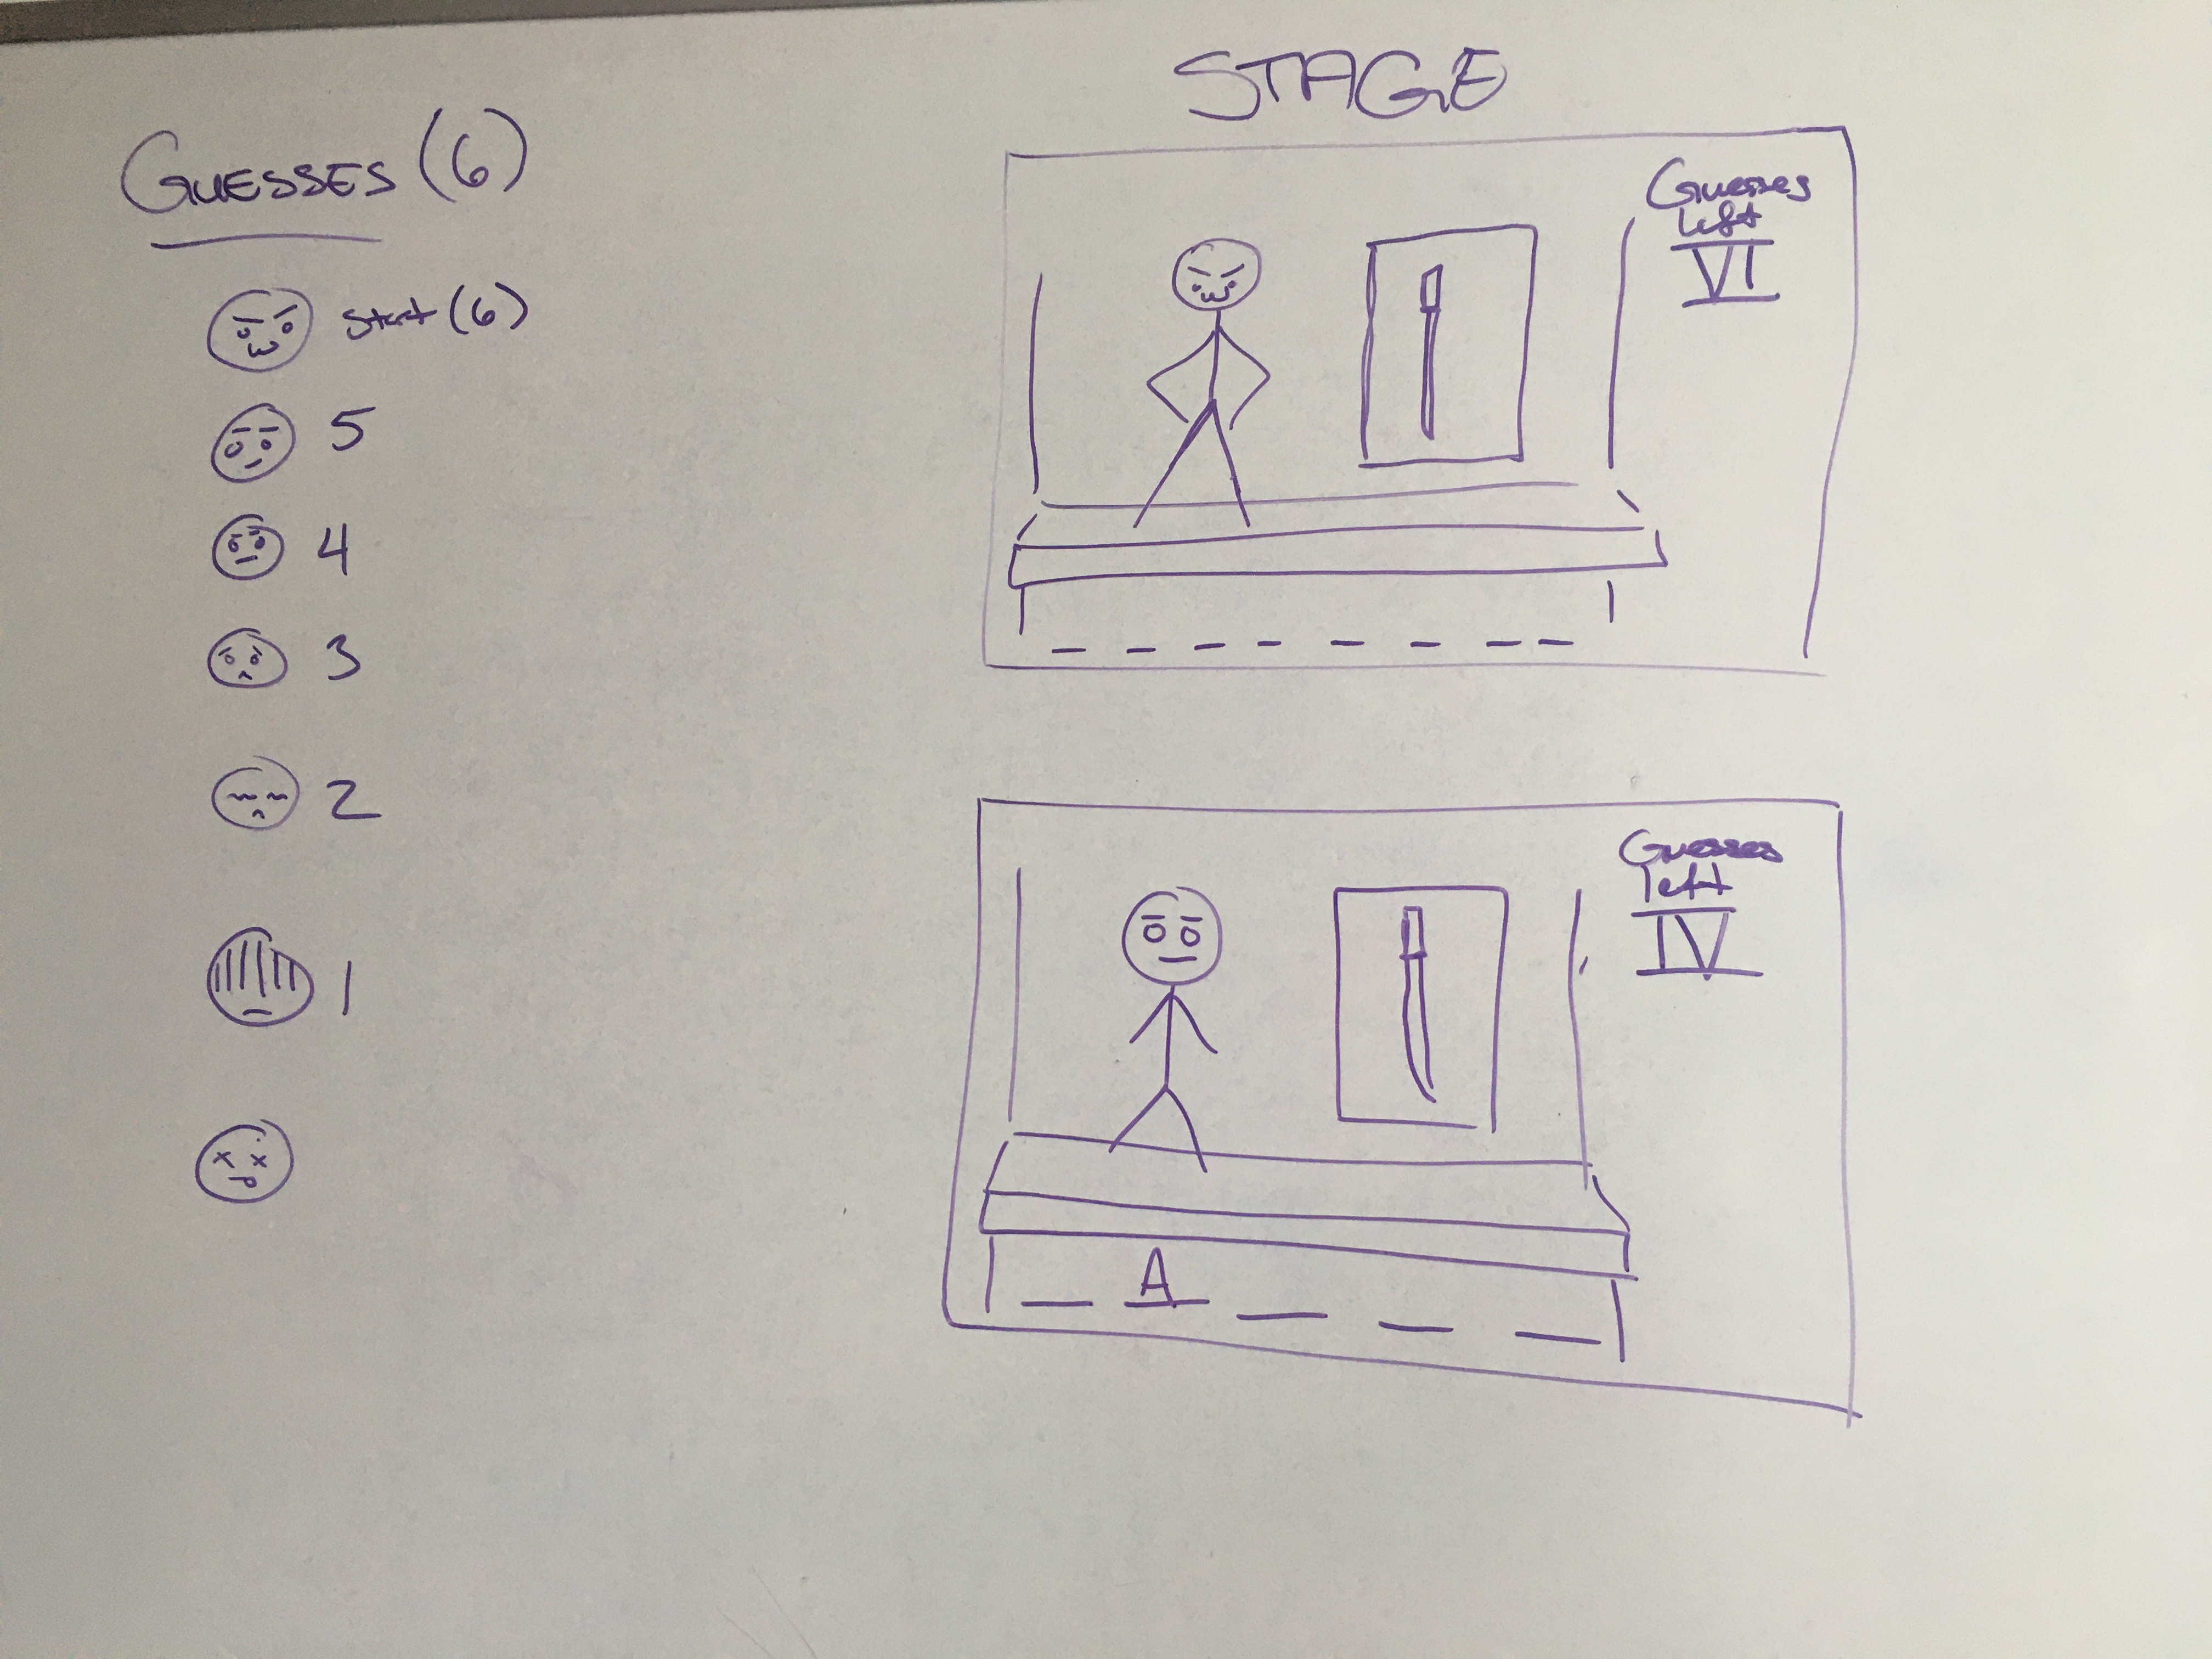 GUESSES (6)
Start (6)
5
4
3
2
1
STAGE
Guesses
left
VI
Guesses
left
IV
A